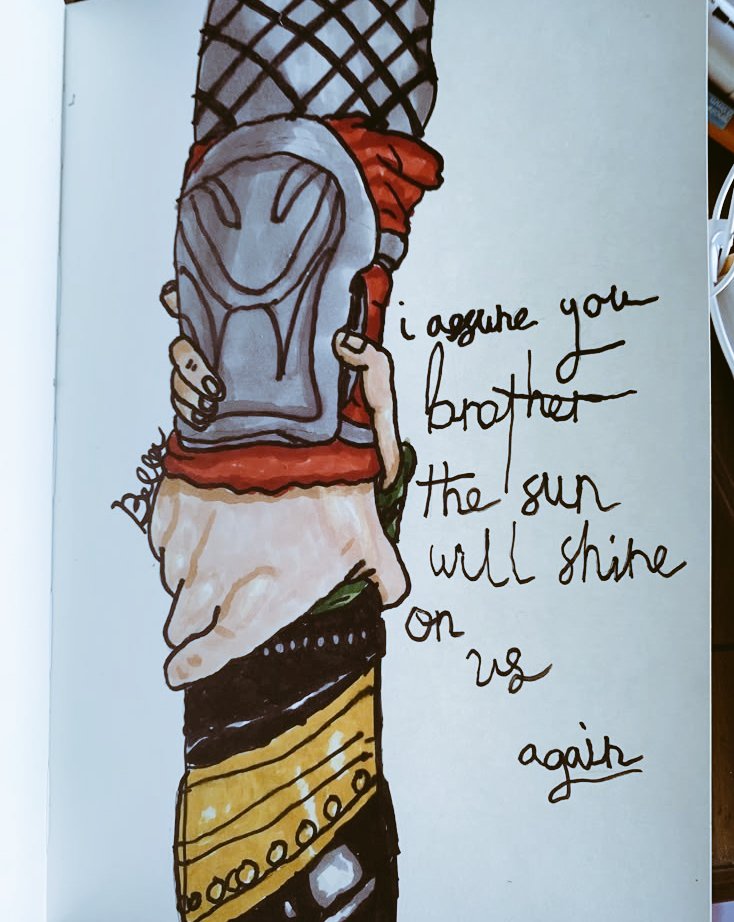 i assure you
brother
the sun
will shine
on
us
again
Bella